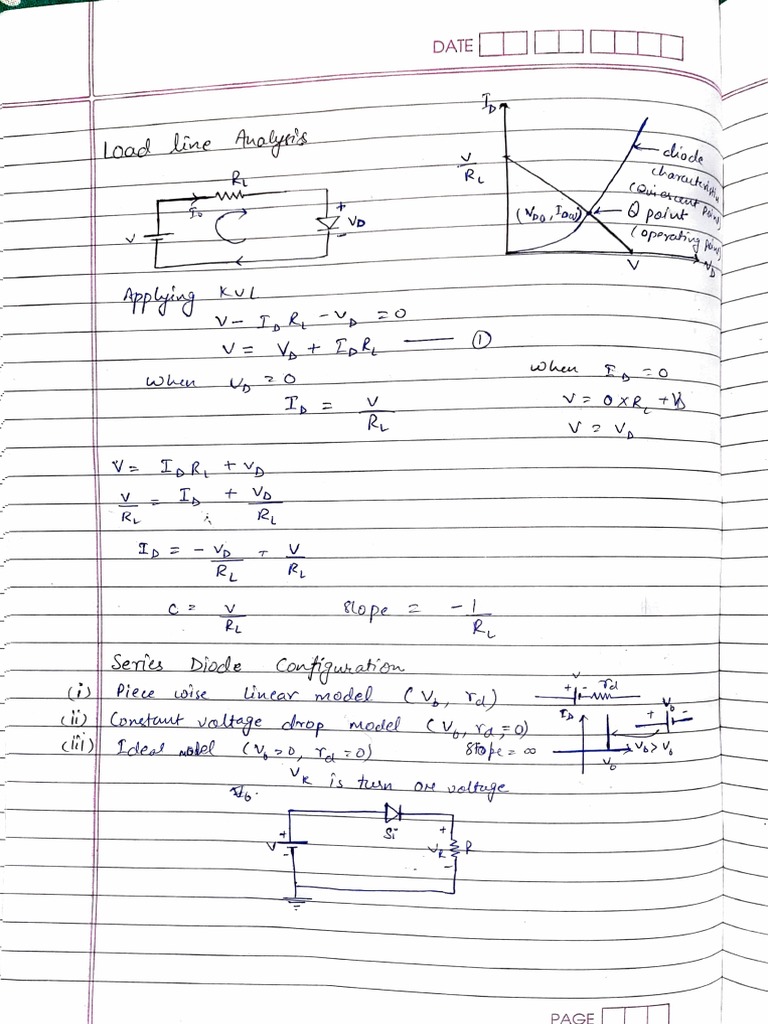 DATE
Load line Analysis
I_D
V/R_L
diode
characteristic
(Quiescent point)
Q point
(operating point)
(V_DQ, I_DQ)
V
V_D
R_L
I_D
V
+
V_D
-
Applying KVL
V - I_D R_L - V_D = 0
V = V_D + I_D R_L —— ①
When V_D = 0
I_D = V/R_L
When I_D = 0
V = 0 × R_L + V_D
V = V_D
V = I_D R_L + V_D
V/R_L = I_D + V_D/R_L
I_D = - V_D/R_L + V/R_L
C = V/R_L slope = -1/R_L
Series Diode Configuration
(i) Piece wise linear model (V_b, r_d)
(ii) Constant voltage drop model (V_b, r_d = 0)
(iii) Ideal model (V_b = 0, r_d = 0)
V
+ - r_d
I_D
slope = ∞
V_b
V_b
+ -
V_D > V_b
V_K is turn on voltage
V_b.
Si
+
V
-
+
V_R R
-
PAGE